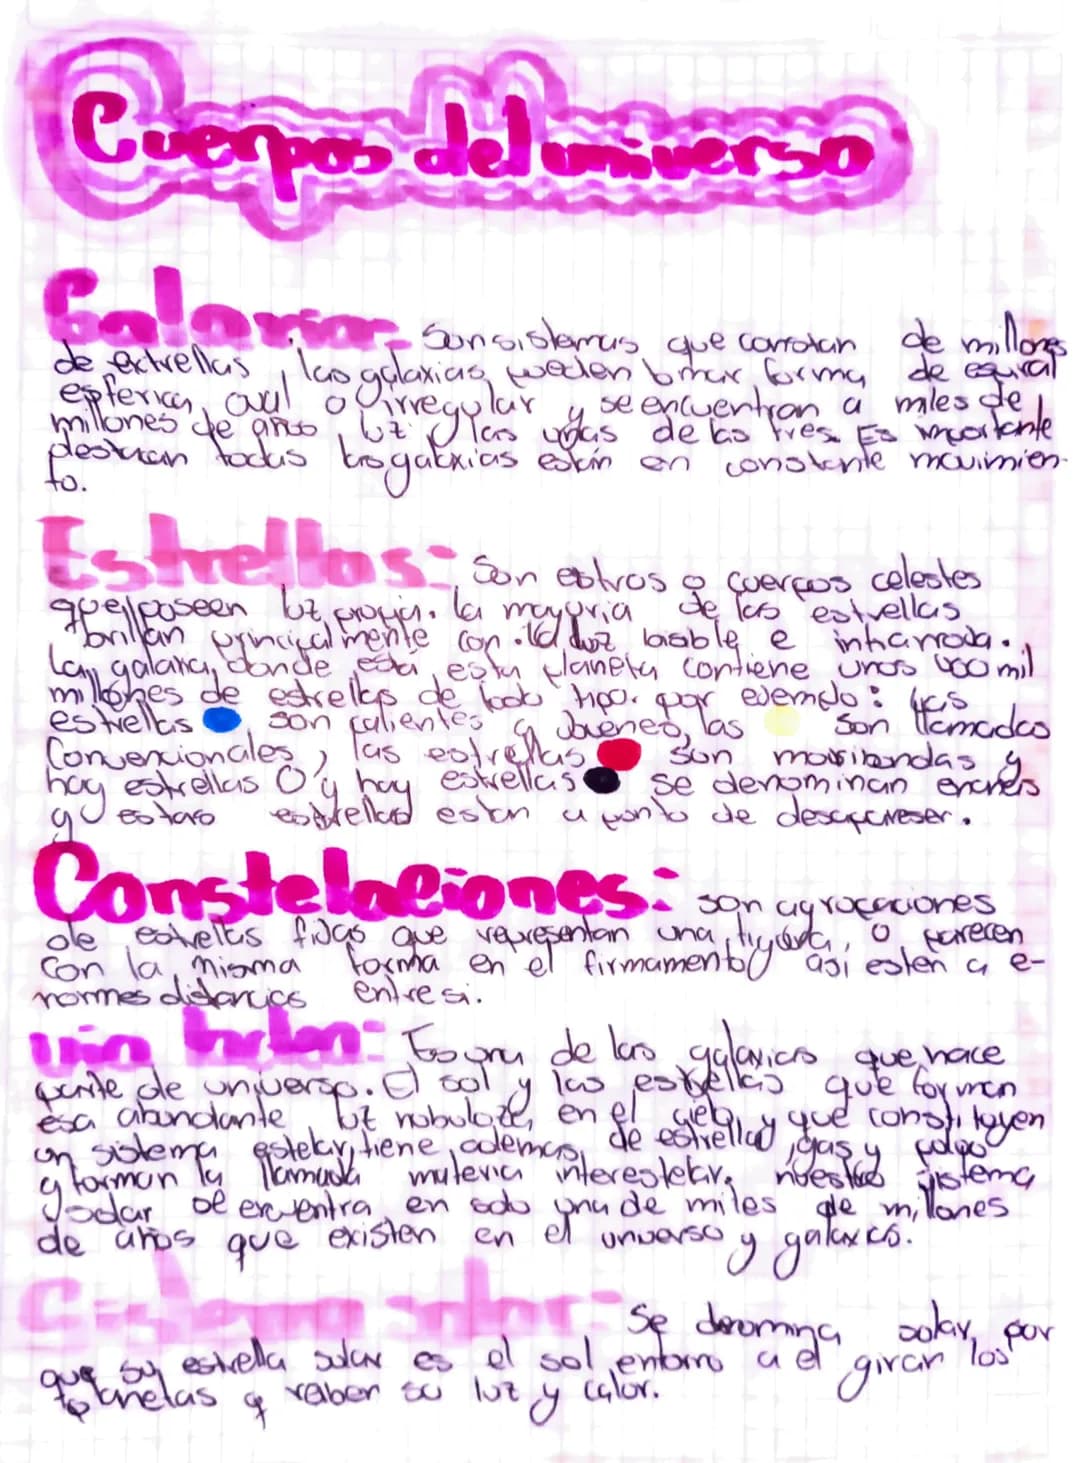 Cuerpos del universo
Galaxias Son sistemas que constan de millones
de extrellas, las galaxias pueden tomar forma de espiral
esferica, oval o irregular y se encuentran a miles de
millones de años luz y las unas de las tres. Es importante
destacan todas las galaxias están en constante movimien-
to.
Estrellas: Son astros o cuerpos celestes
que poseen luz propia. La mayoria de las estrellas
brillan principalmente con la luz visible e infrarroja.
La galaxia donde esta este planeta contiene unos 400 mil
millones de estrellas de todo tipo. por ejemplo: las
estrellas son calientes y jovenes, las son llamadas
Convencionales, las estrellas son moribundas y
hay estrellas O y hay estrellas se denominan enanas
y estas estrellas estan a punto de desapareser.
Constelaciones: son agrupaciones
de estrellas fijas que representan una figura, o parecen
con la misma forma en el firmamento asi esten a e-
normes distancias entre si.
Vía lactea: Es una de las galaxias que hace
parte de universo. El sol y las estrellas que forman
esa abundante luz nobulosa, en el cielo y que constituyen
un sistema estelar, tiene ademas, de estrellas, gas y polvo
y forman la llamada materia interestelar, nuestro sistema
solar se encuentra en solo una de miles de millones
de años que existen en el universo y galaxias.
Sistema solar: Se denomina solar, por
que su estrella solar es el sol, entorno a el giran los
planetas y reciben su luz y calor.